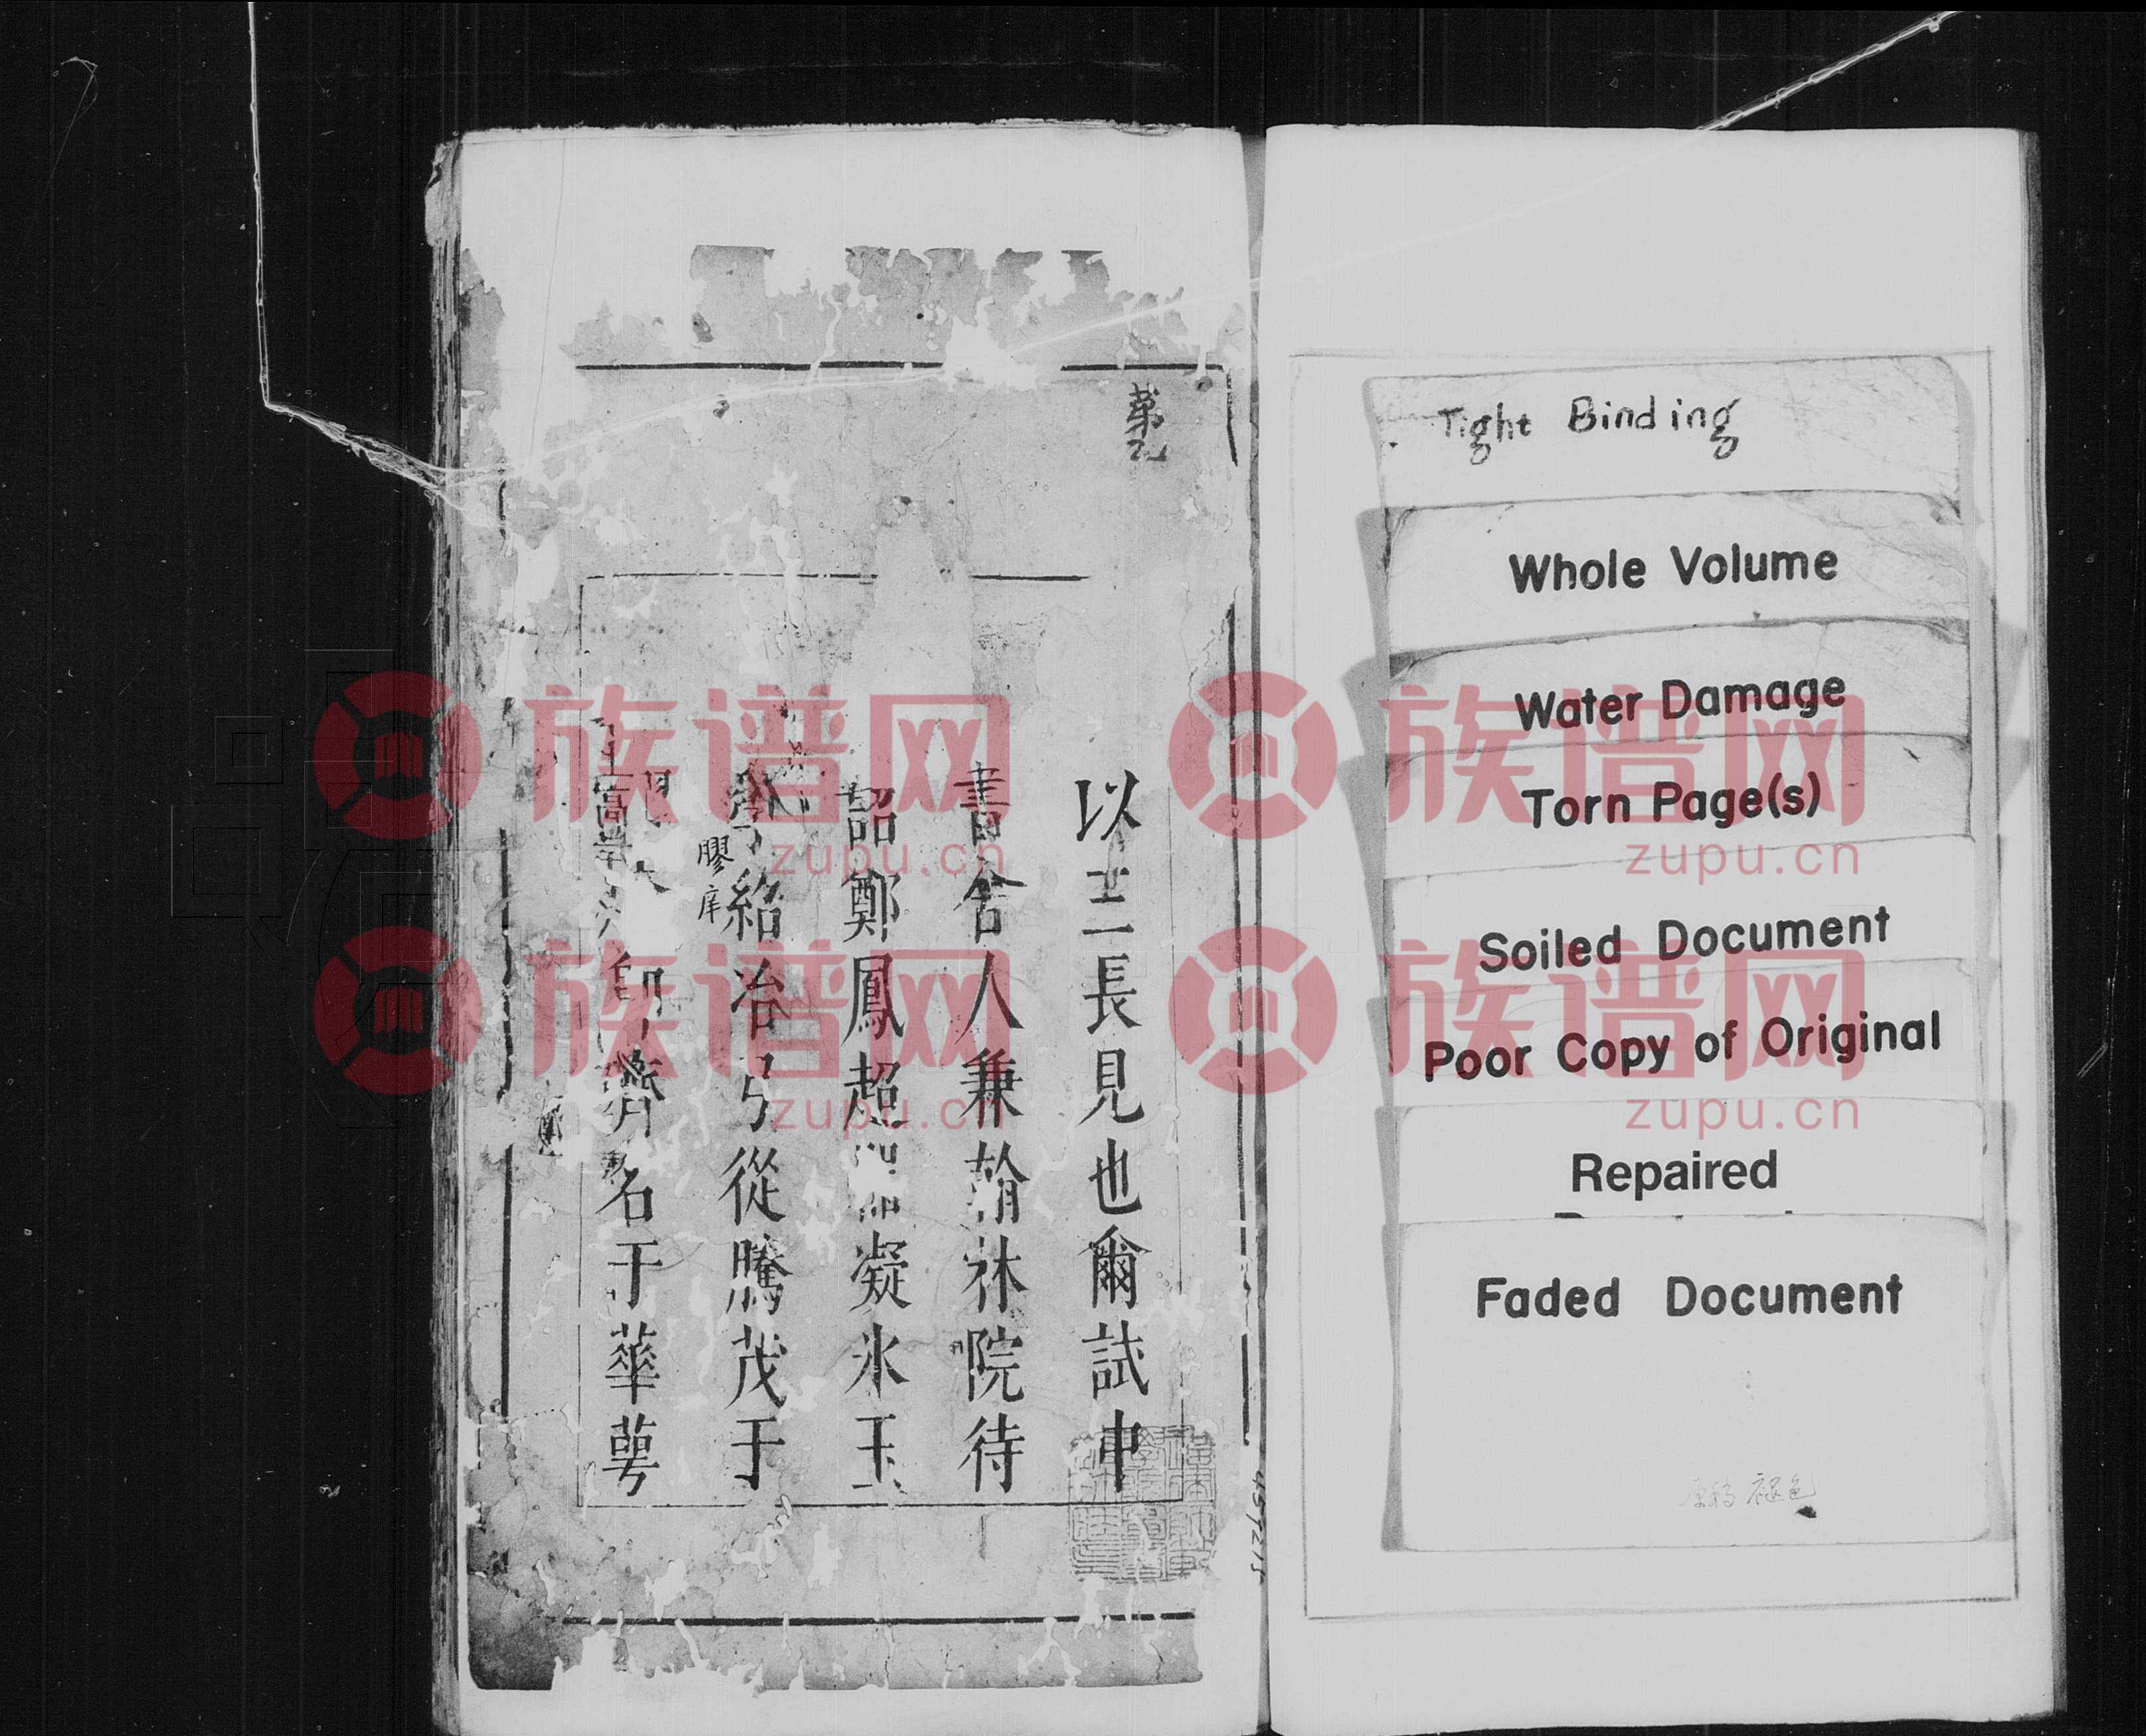 第
以三長見也爾試中
書舍人兼翰林院待
詔鄭鳳超 凝氷玉
紹冶弓從騰茂于
膠庠
濟名于華萼
Tight Binding
Whole Volume
Water Damage
Torn Page(s)
Soiled Document
Poor Copy of Original
Repaired
Faded Document
原稿褪色
457215
族谱网 族谱网
zupu.cn zupu.cn
族谱网 族谱网
zupu.cn zupu.cn